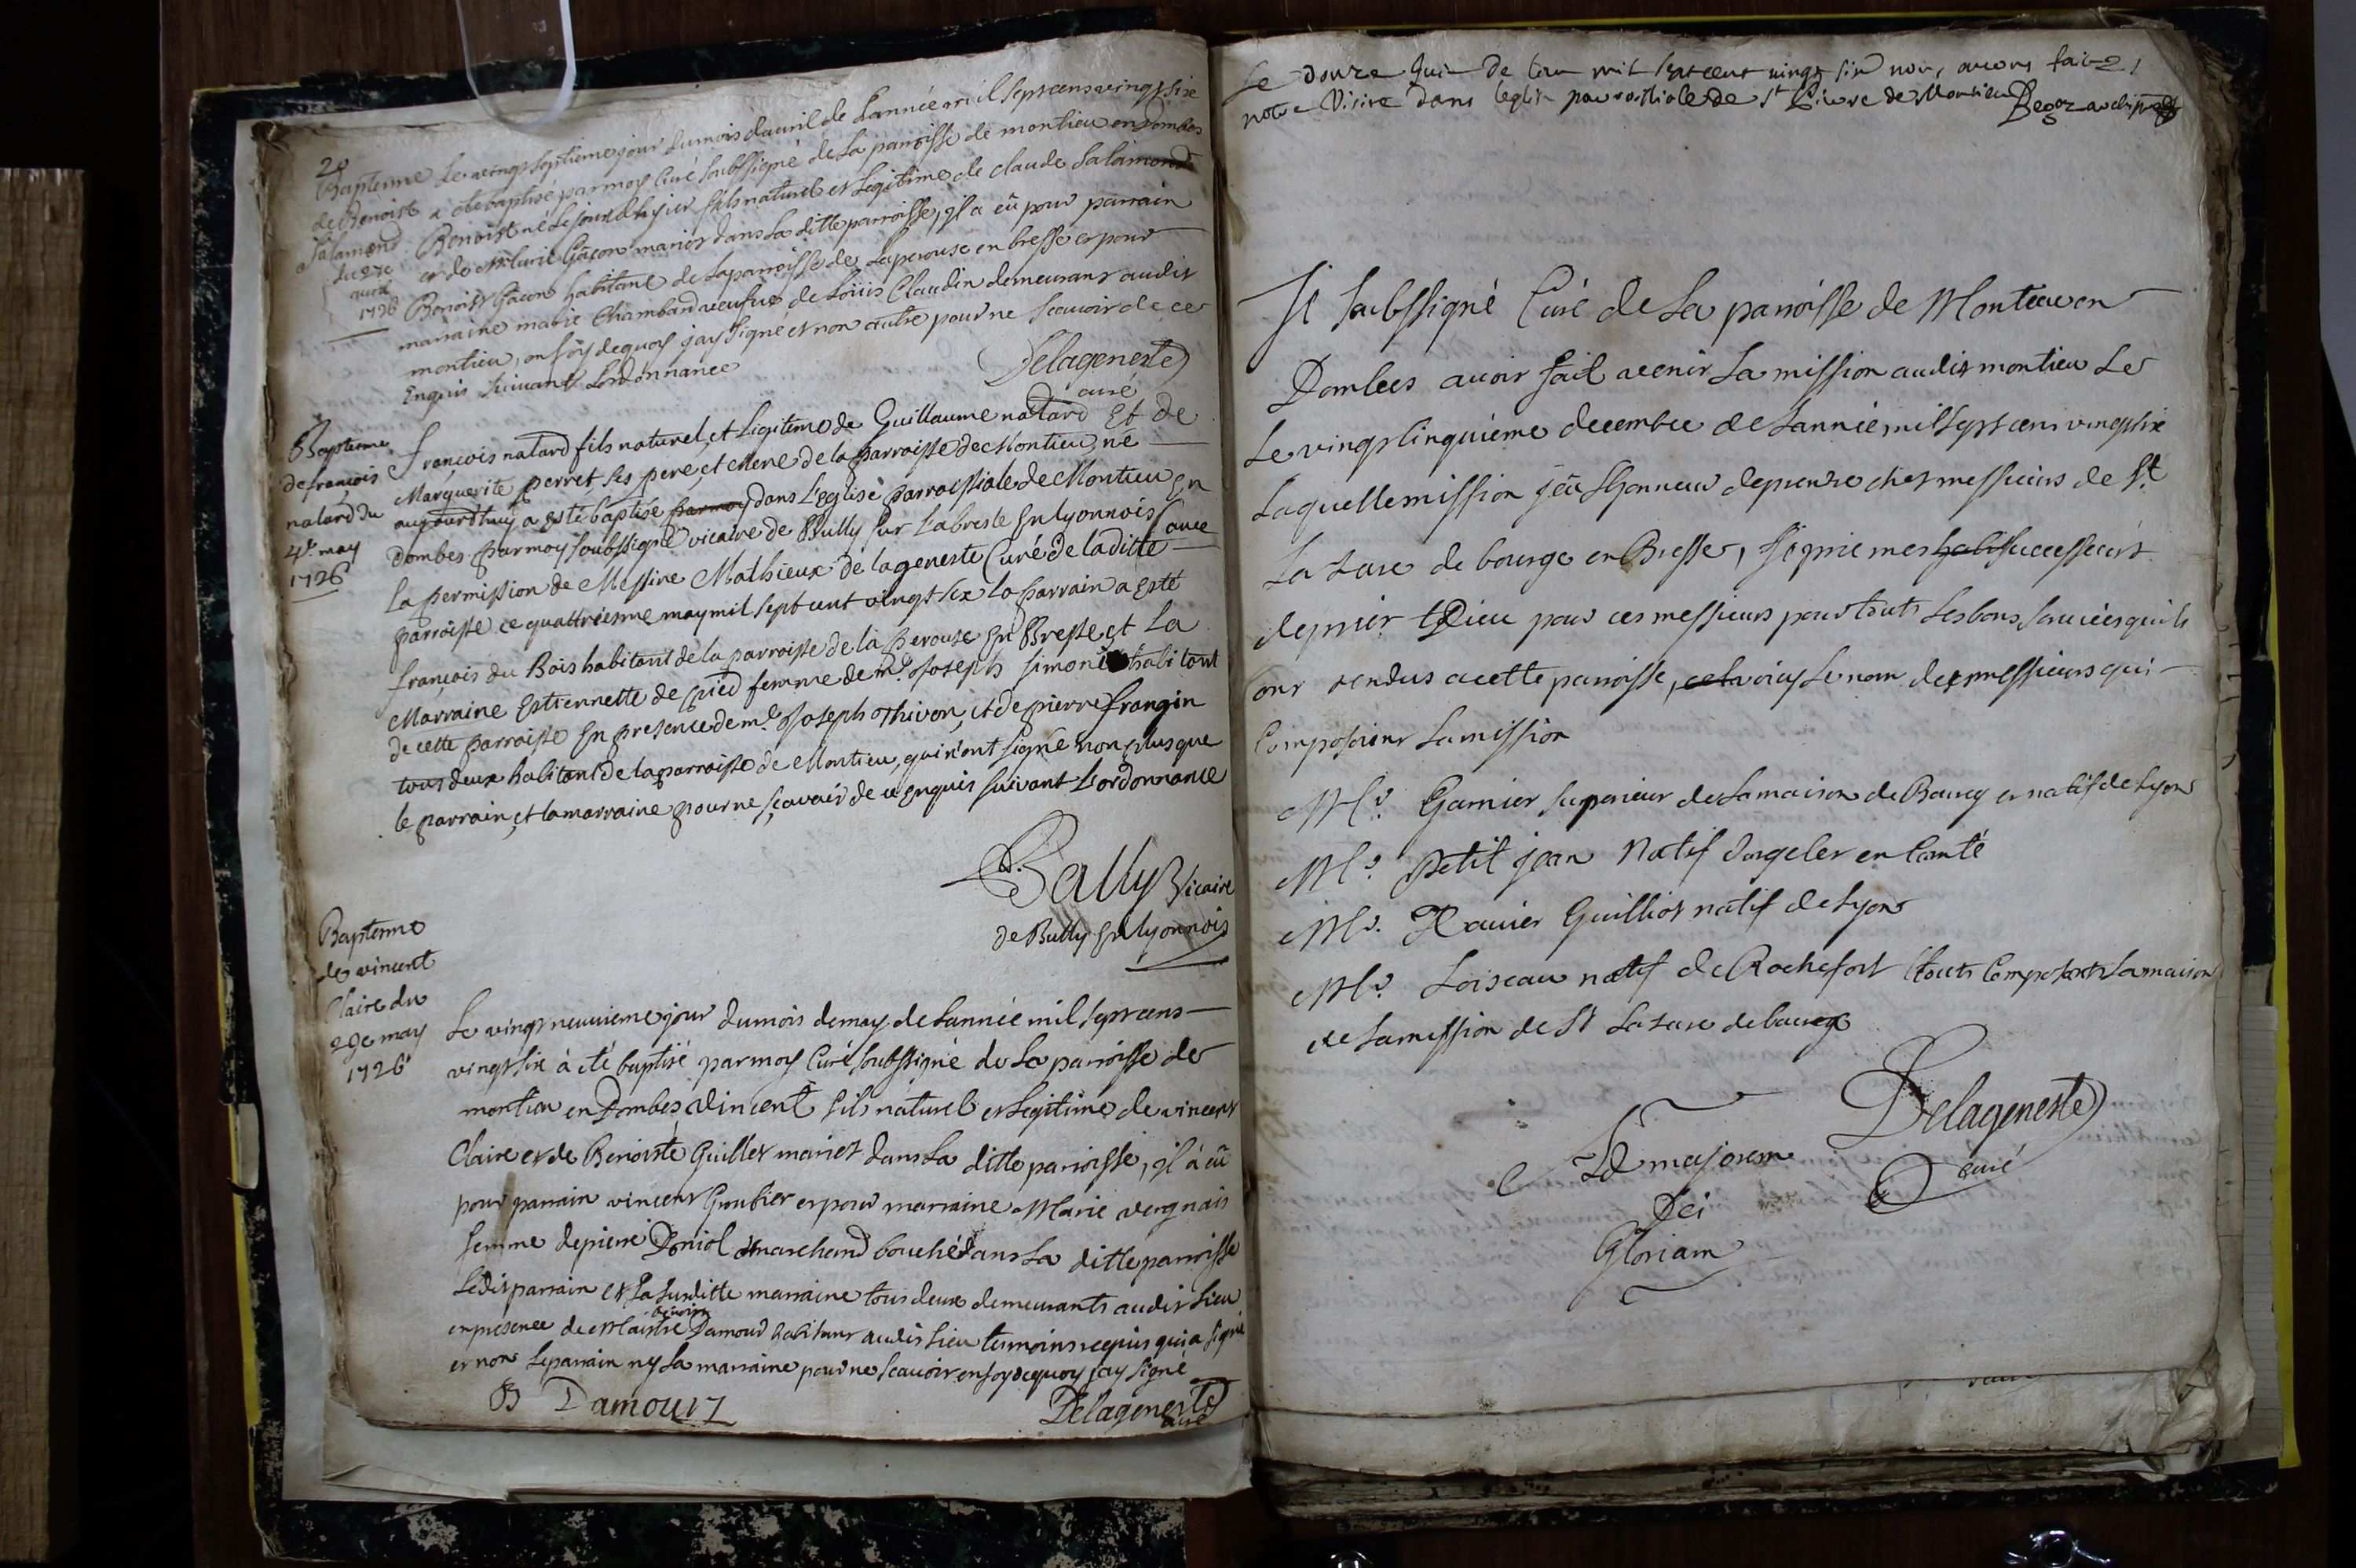 20
Baptême
de Benoist
Salamond
du 27e
avril
1726
Le vingt septieme jour du mois d'avril de l'année mil sept cens vingt six
a été baptisé par moy Curé soubssigné de la parroisse de montieu en Dombes
Benoist né le jour d'hyier fils naturel et legitime de claude Salamond
et de Gâcon mariés dans la ditte parroisse, il a eû pour parrain
Benoist Gâcon habitant de la parroisse de Laperouse en bresse et pour
marraine marie Chamband veufve de Loüis Claudin demeurant audit
montieu, en foÿ dequoy j'ay signé et non autre pour ne scavoir de ce
Enquis suivant L'ordonnance
Delageneste
curé
Baptême
de françois
natard du
4e may
1726
François natard fils naturel, et Legitime de Guillaume natard Et de
Marguerite perret, ses pere, et Mere de la parroisse de Montieu, né
aujourdhuy a esté baptisé par moy dans L'eglise parroissiale de Montieu En
dombes par moy soubssigné vicaire de Bully sur Labresle En lyonnois avec
La permission de Messire Mathieux de lageneste Curé de laditte
parroisse ce quattriesme may mil sept cent vingt six Le parrain a Esté
françois du Bois habitant de la parroisse de la perouse En Bresse, et La
Marraine Estiennette de pied femme de mr. Joseph Simon habitant
de cette parroisse En presence de mr. Joseph Thivon, et de pierre frangin
tous deux habitant de la parroisse de Montieu, qui n'ont signé non plus que
le parrain, et la marraine pour ne sçavoir de ce Enquis suivant L'ordonnance
Bally Vicaire
de Bully En lyonnois
Baptême
de vincent
Claire du
29e may
1726
Le vingt neuvieme jour du mois de may de l'année mil sept cens
vingt six à été baptisé par moy Curé soubssigné de La parroisse de
montieu en Dombes, vincent fils naturel et legitime de vincent
Claire et de Benoiste Guillet mariés dans La ditte parroisse, il à eû
pour parrain vincent Goubier et pour marraine Marie vergnais
femme de pierre Doniol marchand bouché dans La ditte parroisse
Ledit parrain et La susditte marraine tous deux demeurants audit Lieu
en presence de Maistre benoist Damour habitant audit Lieu temoins requis qui a signé
et non Le parrain ny La marraine pour ne scavoir en foy dequoy j'ay signé
B Damour
Delageneste
curé
Le douze Juin de lan mil sept cent vingt six nous avons fait 21
notre Visite dans leglise parroissiale de St Pierre de Montieu
Begoz archiptre
Je soubssigné Curé de La parroisse de Montieu en
Dombes avoir fait venir La mission audit montieu Le
Le vingt cinquième decembre de L'année mil sept cens vingt six
Laquelle mission j'eû L'honneur de prendre chez messieurs de St
La Zare de bourge en Bresse, je prie mes successeurs
de prier Dieu pour ces messieurs pour touts Les bons services qu'ils
ont rendus a cette parroisse, voicy Le nom des messieurs qui
Composoient La mission
Mr. Garnier superieur de La maison de Bourg et natif de Lyon
Mr. petit jean Natif d'orgelet en Comté
Mr. Xavier Guilliot natif de Lyon
Mr. Loiseau natif de Rochefort touts Composants La maison
de La mission de St Lazare de bourge
Delageneste
curé
Ad majorem
Dei
Gloriam